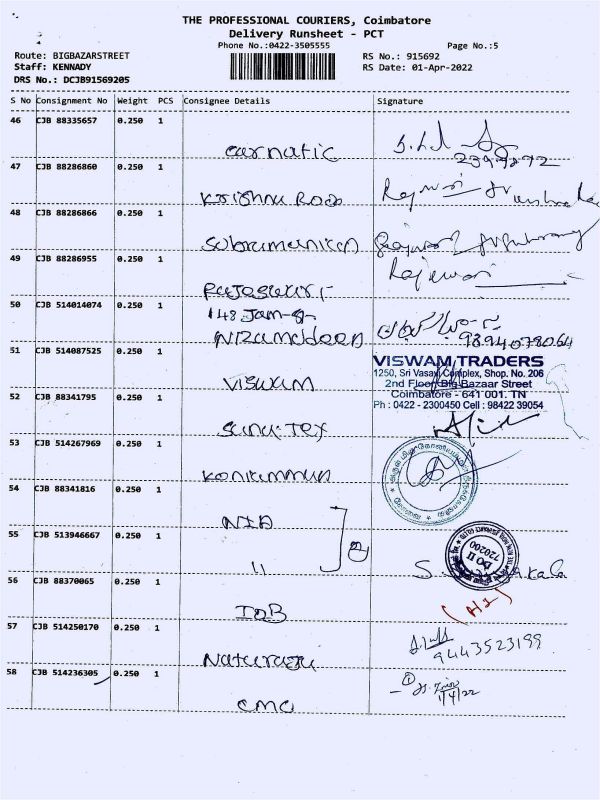 THE PROFESSIONAL COURIERS, Coimbatore
Delivery Runsheet - PCT
Phone No.:0422-3505555
Page No.:5
Route: BIGBAZARSTREET
RS No.: 915692
Staff: KENNADY
RS Date: 01-Apr-2022
DRS No.: DCJB91569205
S No Consignment No Weight PCS Consignee Details Signature
46 CJB 88335657 0.250 1
carnatic
47 CJB 88286860 0.250 1
48 CJB 88286866 0.250 1
49 CJB 88286955 0.250 1
50 CJB 514014074 0.250 1
148
9894078064
51 CJB 514087525 0.250 1
VISWAM TRADERS
1250, Sri Vasavi Complex, Shop. No. 206
2nd Floor Big Bazaar Street
Coimbatore - 641 001. TN
Ph : 0422 - 2300450 Cell : 98422 39054
viswam
52 CJB 88341795 0.250 1
53 CJB 514267969 0.250 1
54 CJB 88341816 0.250 1
NIA
55 CJB 513946667 0.250 1
"
56 CJB 88370065 0.250 1
IOB
57 CJB 514250170 0.250 1
9443523199
58 CJB 514236305 0.250 1
1/4/22
CMC